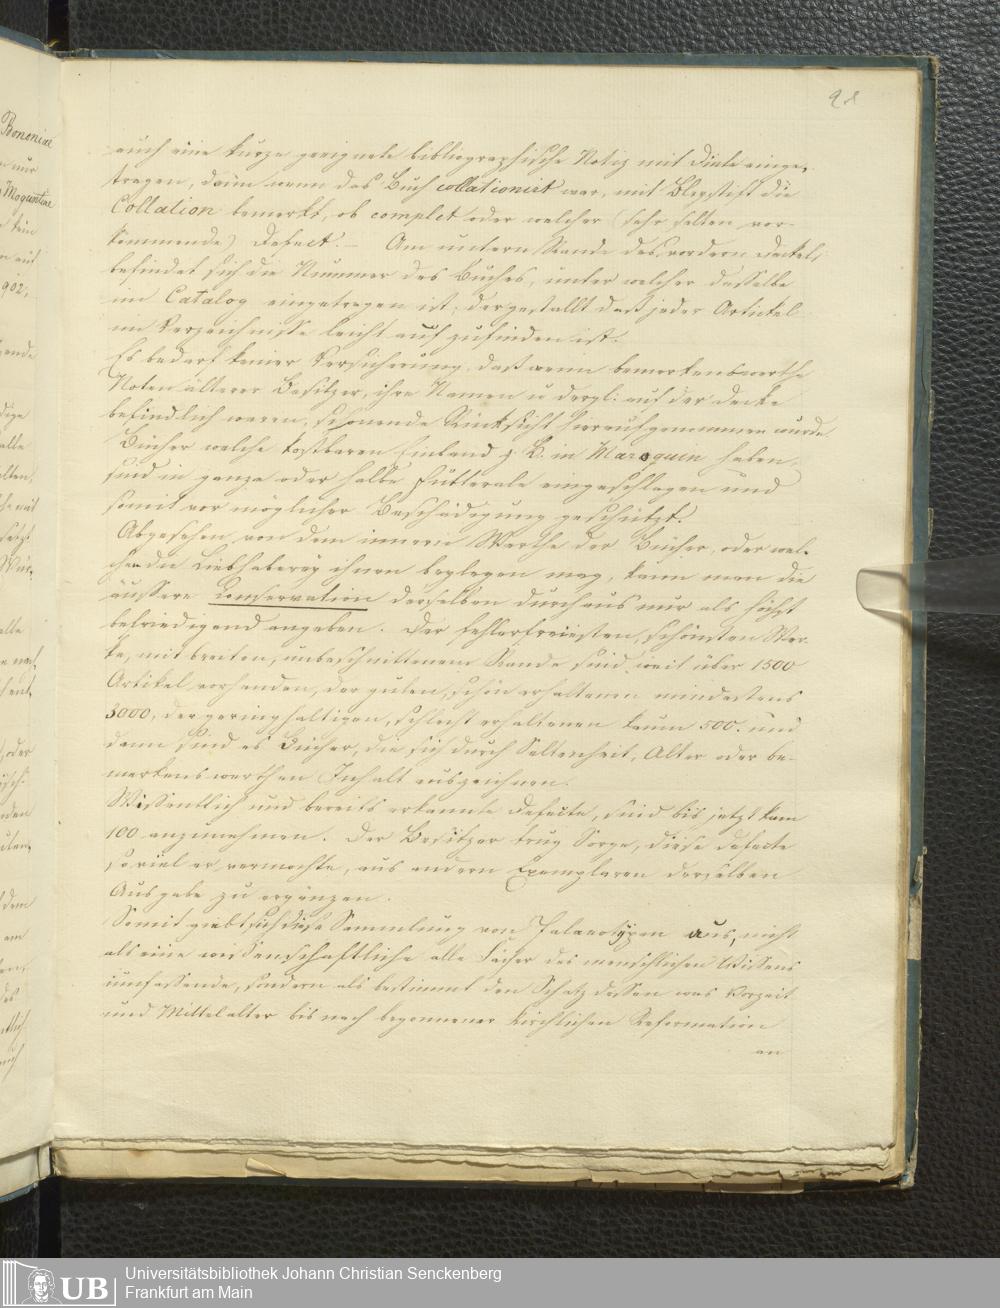 auch eine kurze geeignete bibliographische Notiz mit Dinte einge-
tragen, dann wenn das Buch collationirt war, mit Bleystift die
Collation bemerkt, ob complet oder welcher (sehr selten vor-
kommende) Defect. – Am untern Rande des vordern Deckels
befindet sich die Nummer des Buches, unter welcher dasselbe
im Catalog eingetragen ist; dergestallt daß jeder Artickel
im Verzeichnisse leicht auf zufinden ist.
Es bedarf keiner Versicherung, daß wenn bemerkenswerthe
Noten älterer Besitzer, ihre Namen u dergl: auf der Decke
befindlich waren, schonende Rücksicht hierauf genommen wurde
Bücher welche kostbaren Einband z. B. in Maroquin haben,
sind in ganze oder halbe Futterale eingeschlagen und
somit vor möglicher Beschädigung geschützt.
Abgesehen von dem innern Werthe der Bücher, oder wel-
chen die Liebhaberey ihnen beylegen mag, kann man die
äussere Conservation derselben durchaus nur als höchst
befriedigend angeben. Der fehlerfreiesten, schönsten Wer-
ke, mit breiten, unbeschnittenem Rande sind weit über 1500
Artikel vorhanden, der guten, schön erhaltenen mindestens
3000, der geringhaltigen, schlecht erhaltenen kaum 500. und
dann sind es Bücher, die sich durch Seltenheit, Alter oder be-
merkenswerthen Inhalt auszeichnen.
Wissentlich und bereits erkannte Defecte, sind bis jetzt kaum
100 anzunehmen. Der Besitzer trug Sorge, diese Defecte
so viel er vermochte, aus andern Exemplaren derselben
Ausgabe zu ergänzen.
Somit giebt sich diese Sammlung von Palaeotypen aus, nicht
als eine wissenschaftliche alle Fächer des menschlichen Wissens
umfassende, sondern als bestimmt den Schatz dessen was Vorzeit
und Mittelalter bis nach begonnener kirchlichen Reformation
an
Bononiae
nur
Moguntiae
902,
UB
Universitätsbibliothek Johann Christian Senckenberg
Frankfurt am Main